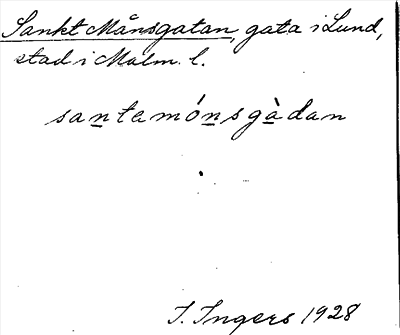 Sankt Månsgatan, gata i Lund,
stad i Malm. l.
santemónsgàdan
I. Ingers 1928